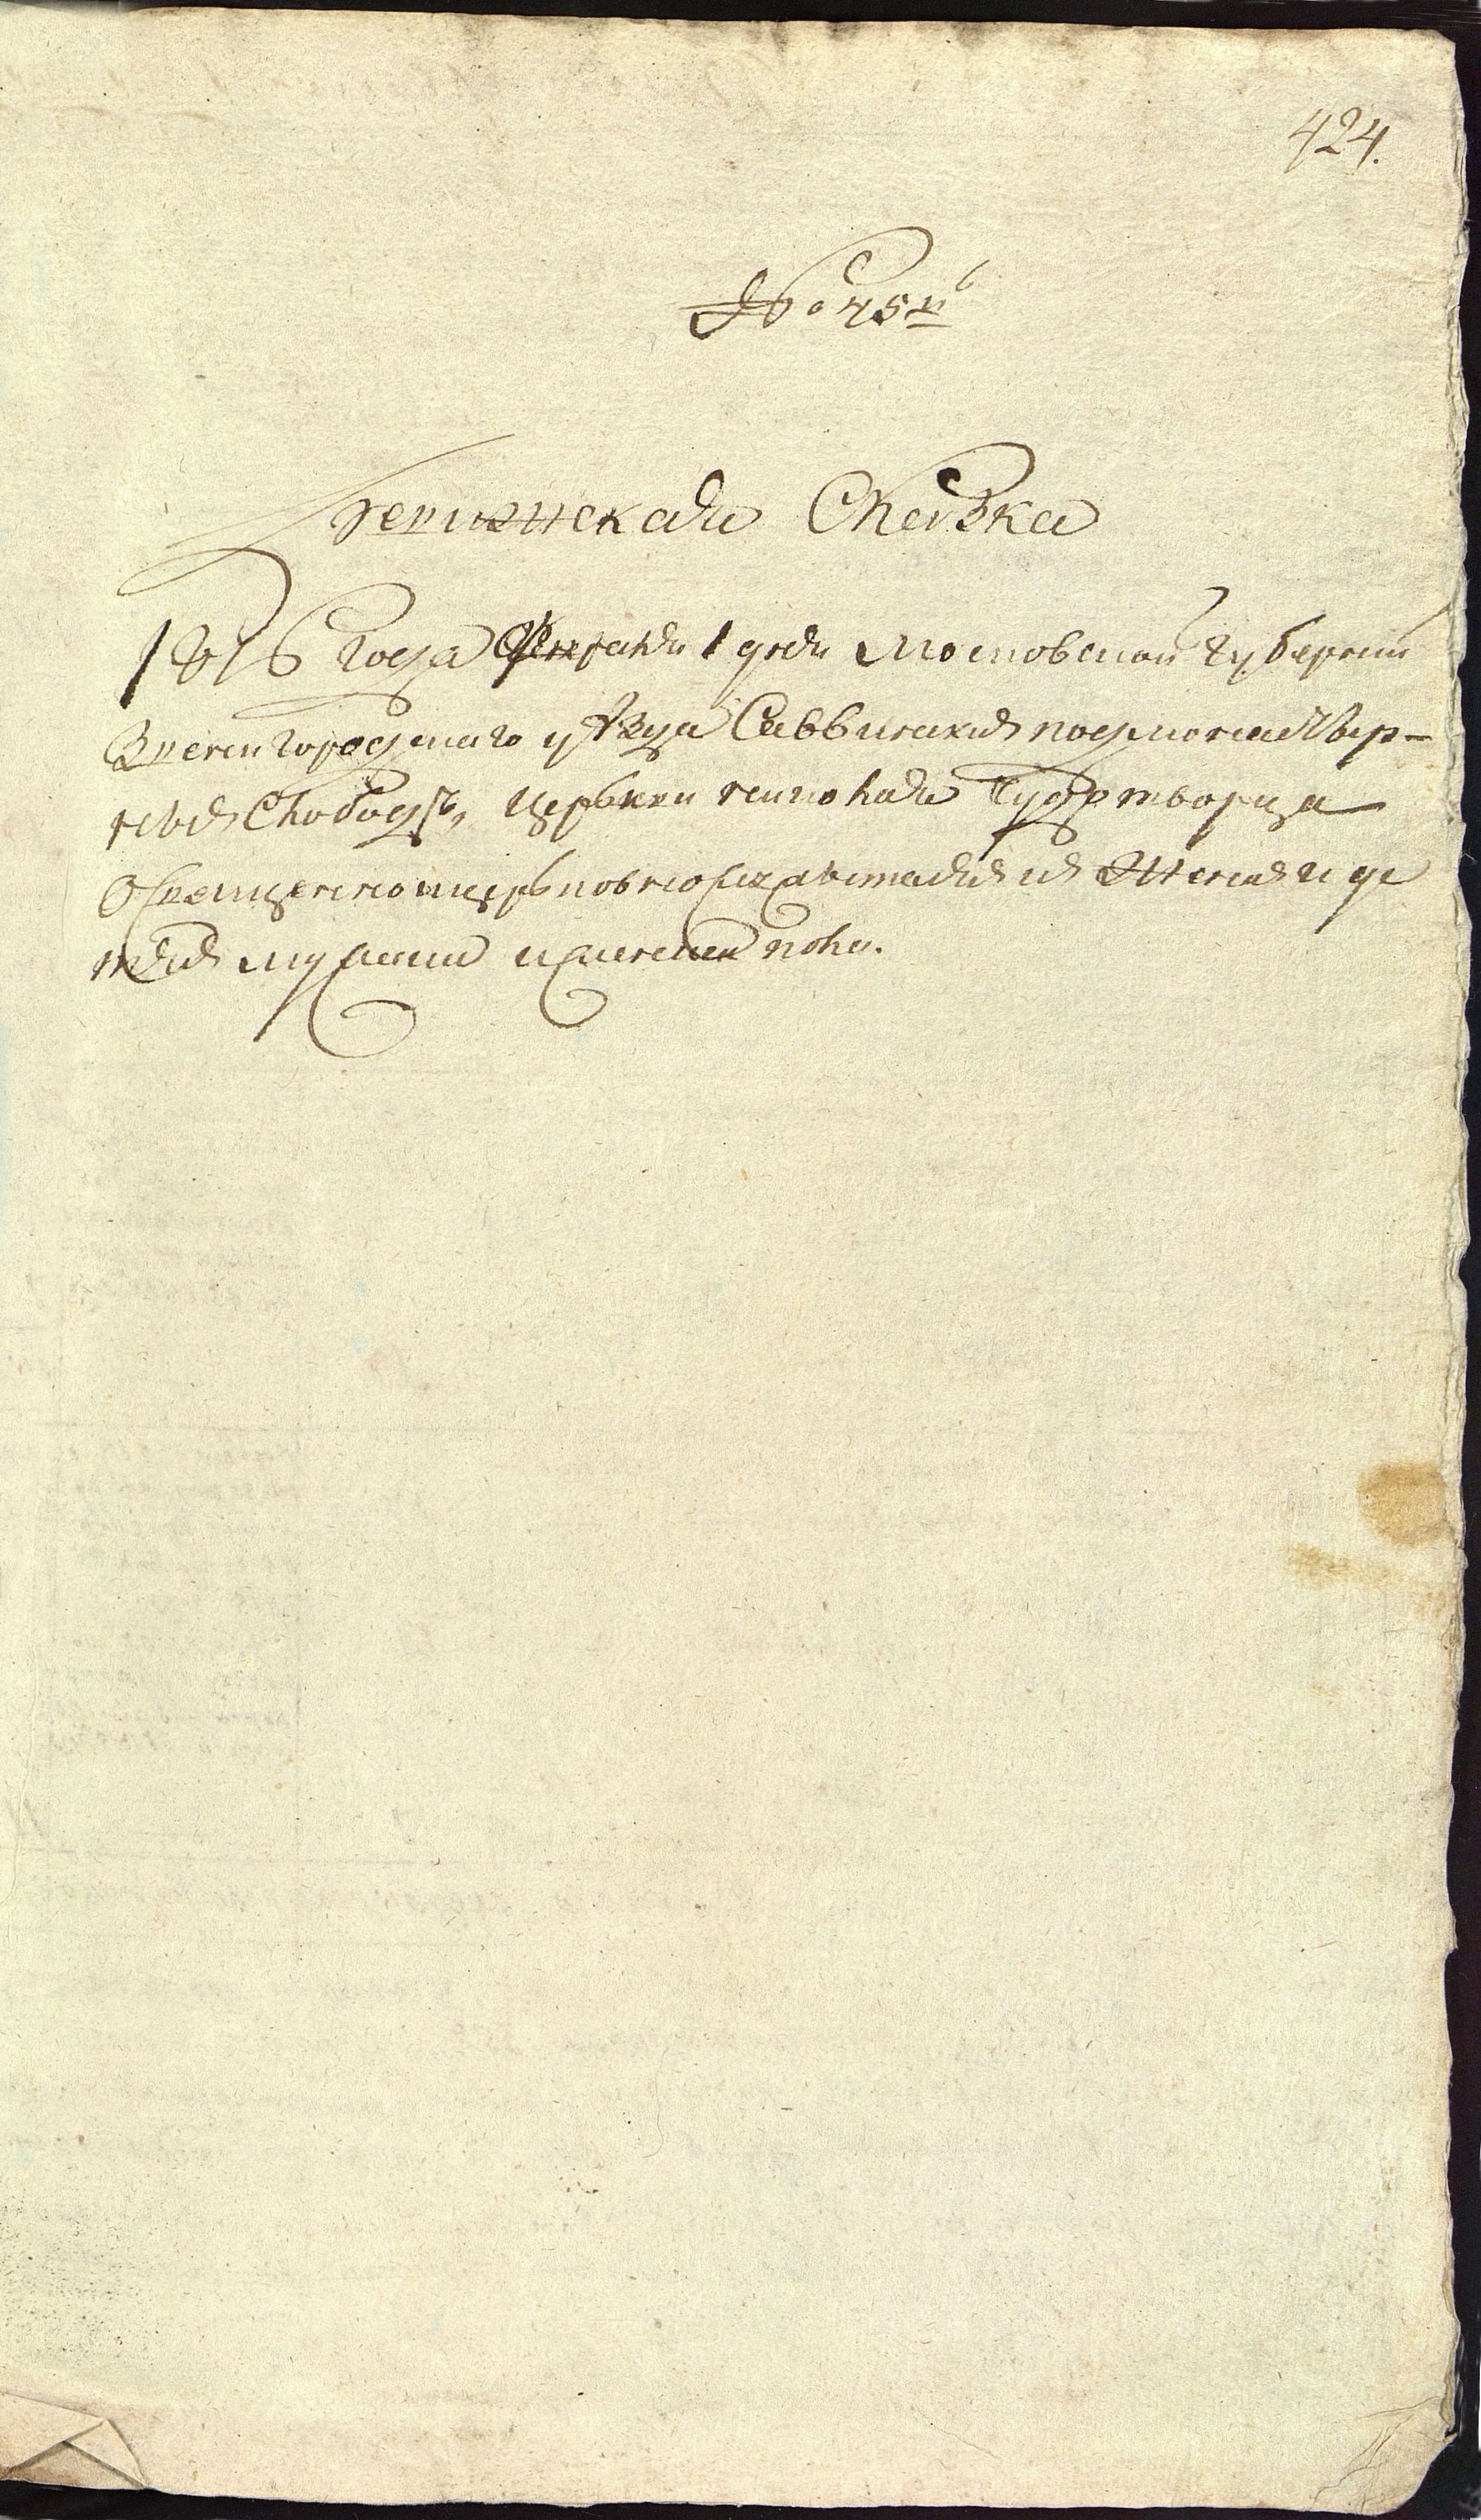 424.
№ 45й
Ревижская Сказка
1816 года Февраля 1 дня Московской Губернии
Звенигородскаго уѣзда Саввинския подмонастыр-
ныя Слободы, церькви николая Чудотворца
Освященно церьковнослужителяхъ ихъ женахъ и де
тяхъ мужеска и женска пола.